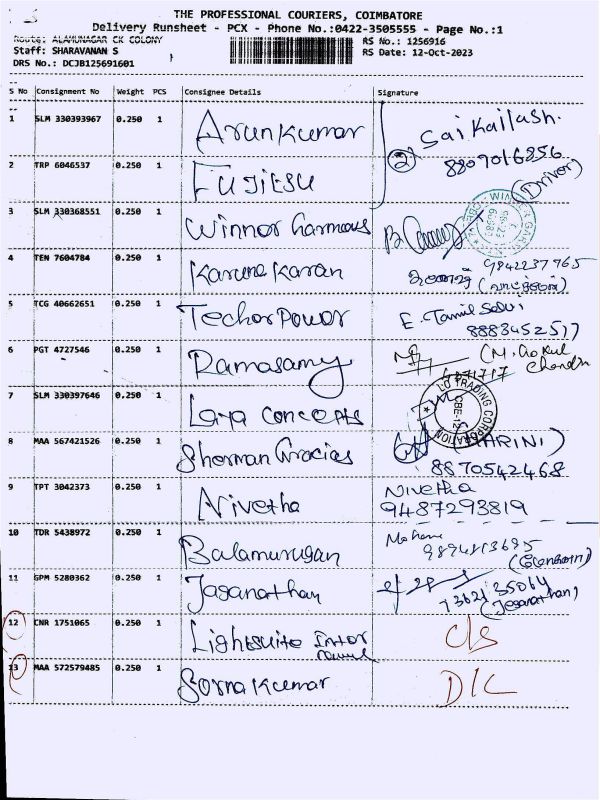 THE PROFESSIONAL COURIERS, COIMBATORE
Delivery Runsheet - PCX - Phone No.:0422-3505555 - Page No.:1
Route: ALAMUNAGAR CK COLONY
RS No.: 1256916
Staff: SHARAVANAN S
RS Date: 12-Oct-2023
DRS No.: DCJB125691601
S No Consignment No Weight PCS Consignee Details Signature
1 SLM 330393967 0.250 1 Arunkumar Saikailash.
8809016856
(Driver)
2 TRP 6046537 0.250 1 FUJIESU
3 SLM 330368551 0.250 1 Winnor harmous
4 TEN 7604784 0.250 1 Karuna Karan 9842237765
5 TCG 40662651 0.250 1 Techor Power E. Tamil Selvi
8883452517
6 PGT 4727546 0.250 1 Ramasamy (M. Gokul
Chandru
7 SLM 330397646 0.250 1 Laya concepts
8 MAA 567421526 0.250 1 Sherman Gracias (HARINI)
8870542468
9 TPT 3042373 0.250 1 Nivetha Nivetha
9487293819
10 TDR 5438972 0.250 1 Balamurugan
11 GPM 5280362 0.250 1 Jaganathan 7362135064
(Jaganathan)
12 CNR 1751065 0.250 1 Lightsuite Inter C/S
13 MAA 572579485 0.250 1 Sornakumar D/C